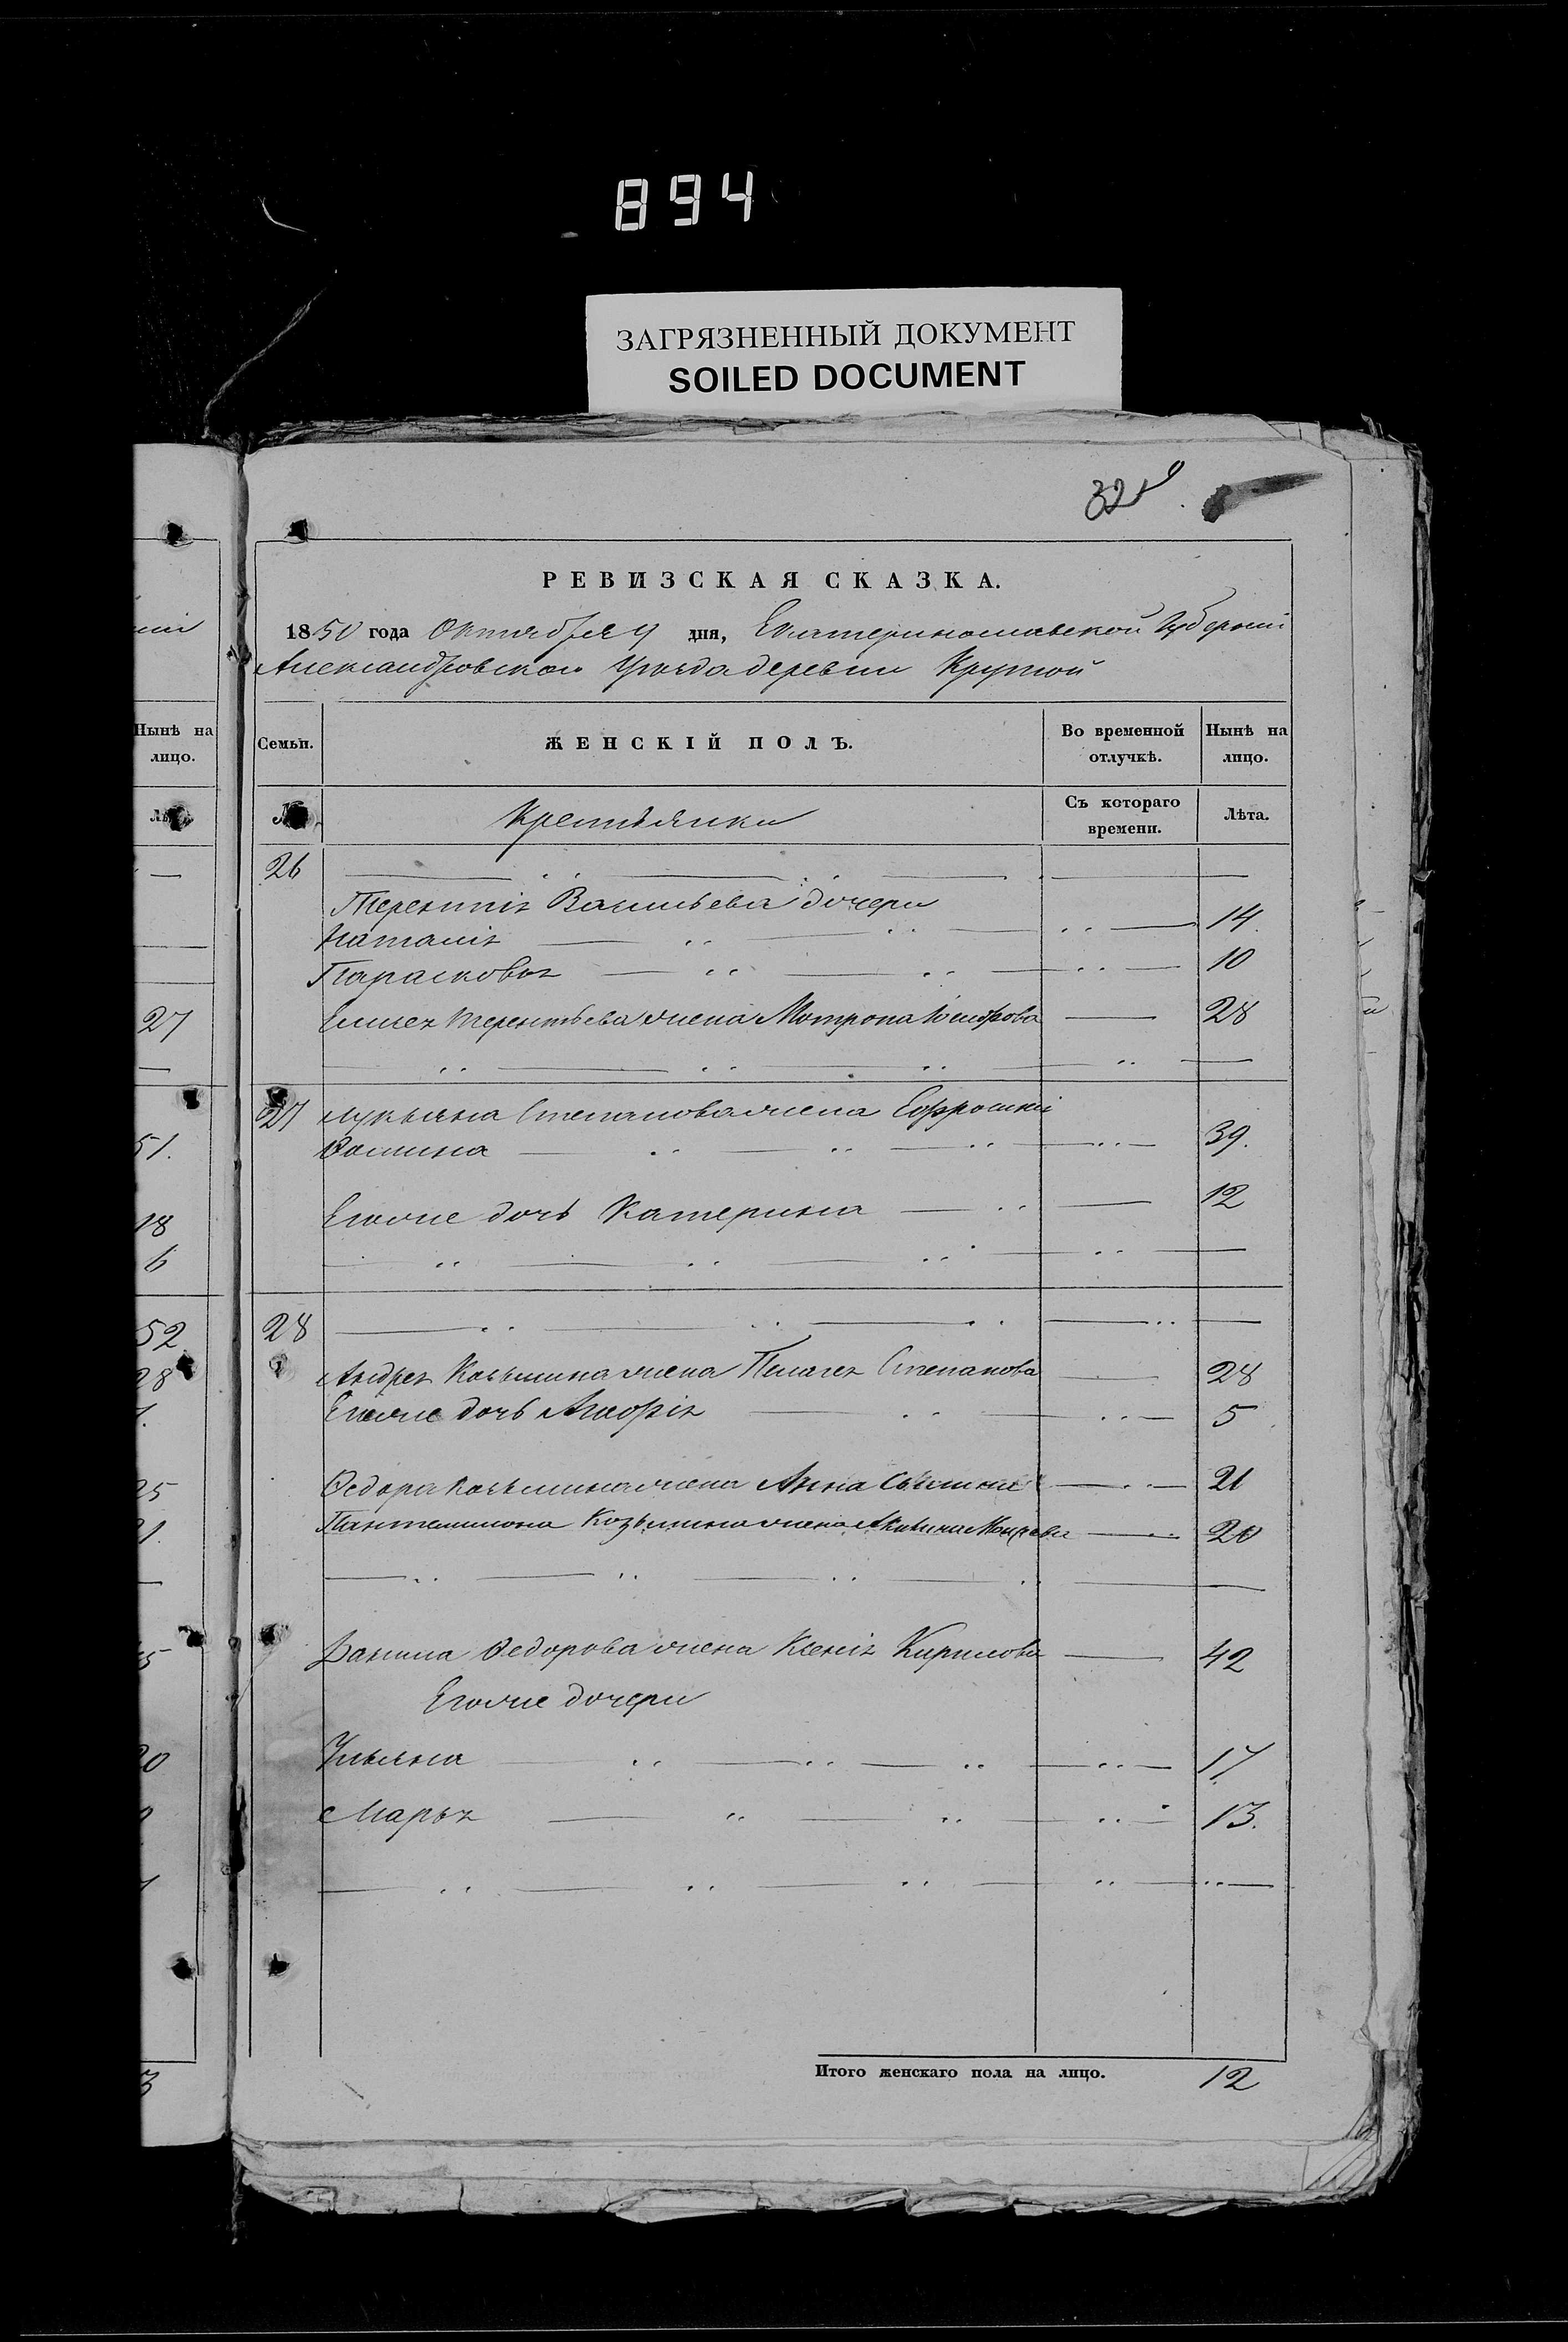 894
ЗАГРЯЗНЕННЫЙ ДОКУМЕНТ
SOILED DOCUMENT
РЕВИЗСКАЯ СКАЗКА.
1850 года Октября 9 дня, Екатеринославской Губерніи
Александровскаго Уѣзда деревни Крутой
Нынѣ на лицо.
Семьи.
ЖЕНСКІЙ ПОЛЪ.
Во временной отлучкѣ.
Нынѣ на лицо.
№
Крестьянки
Съ котораго времени.
Лѣта.
26
Терентія Васильева дочери
Наталія 14.
Парасковья 10
27
Елисея Терентьева жена Мотрона 28
27 Лукьяна Степанова жена Ефросинія
51.
Фомина 39.
18
Егоже дочь Катерина 12
6
52
28
28
Андрея Козьмина жена Пелагея Степанова 28
Егоже дочь 5
25
Федора Козьмина жена Анна 21
Пантелимона Козьмина жена 20
Данила Федорова жена Ксенія Кирилова 42
Егоже дочери
Ульяна 17
Марья 13.
Итого женскаго пола на лицо. 12